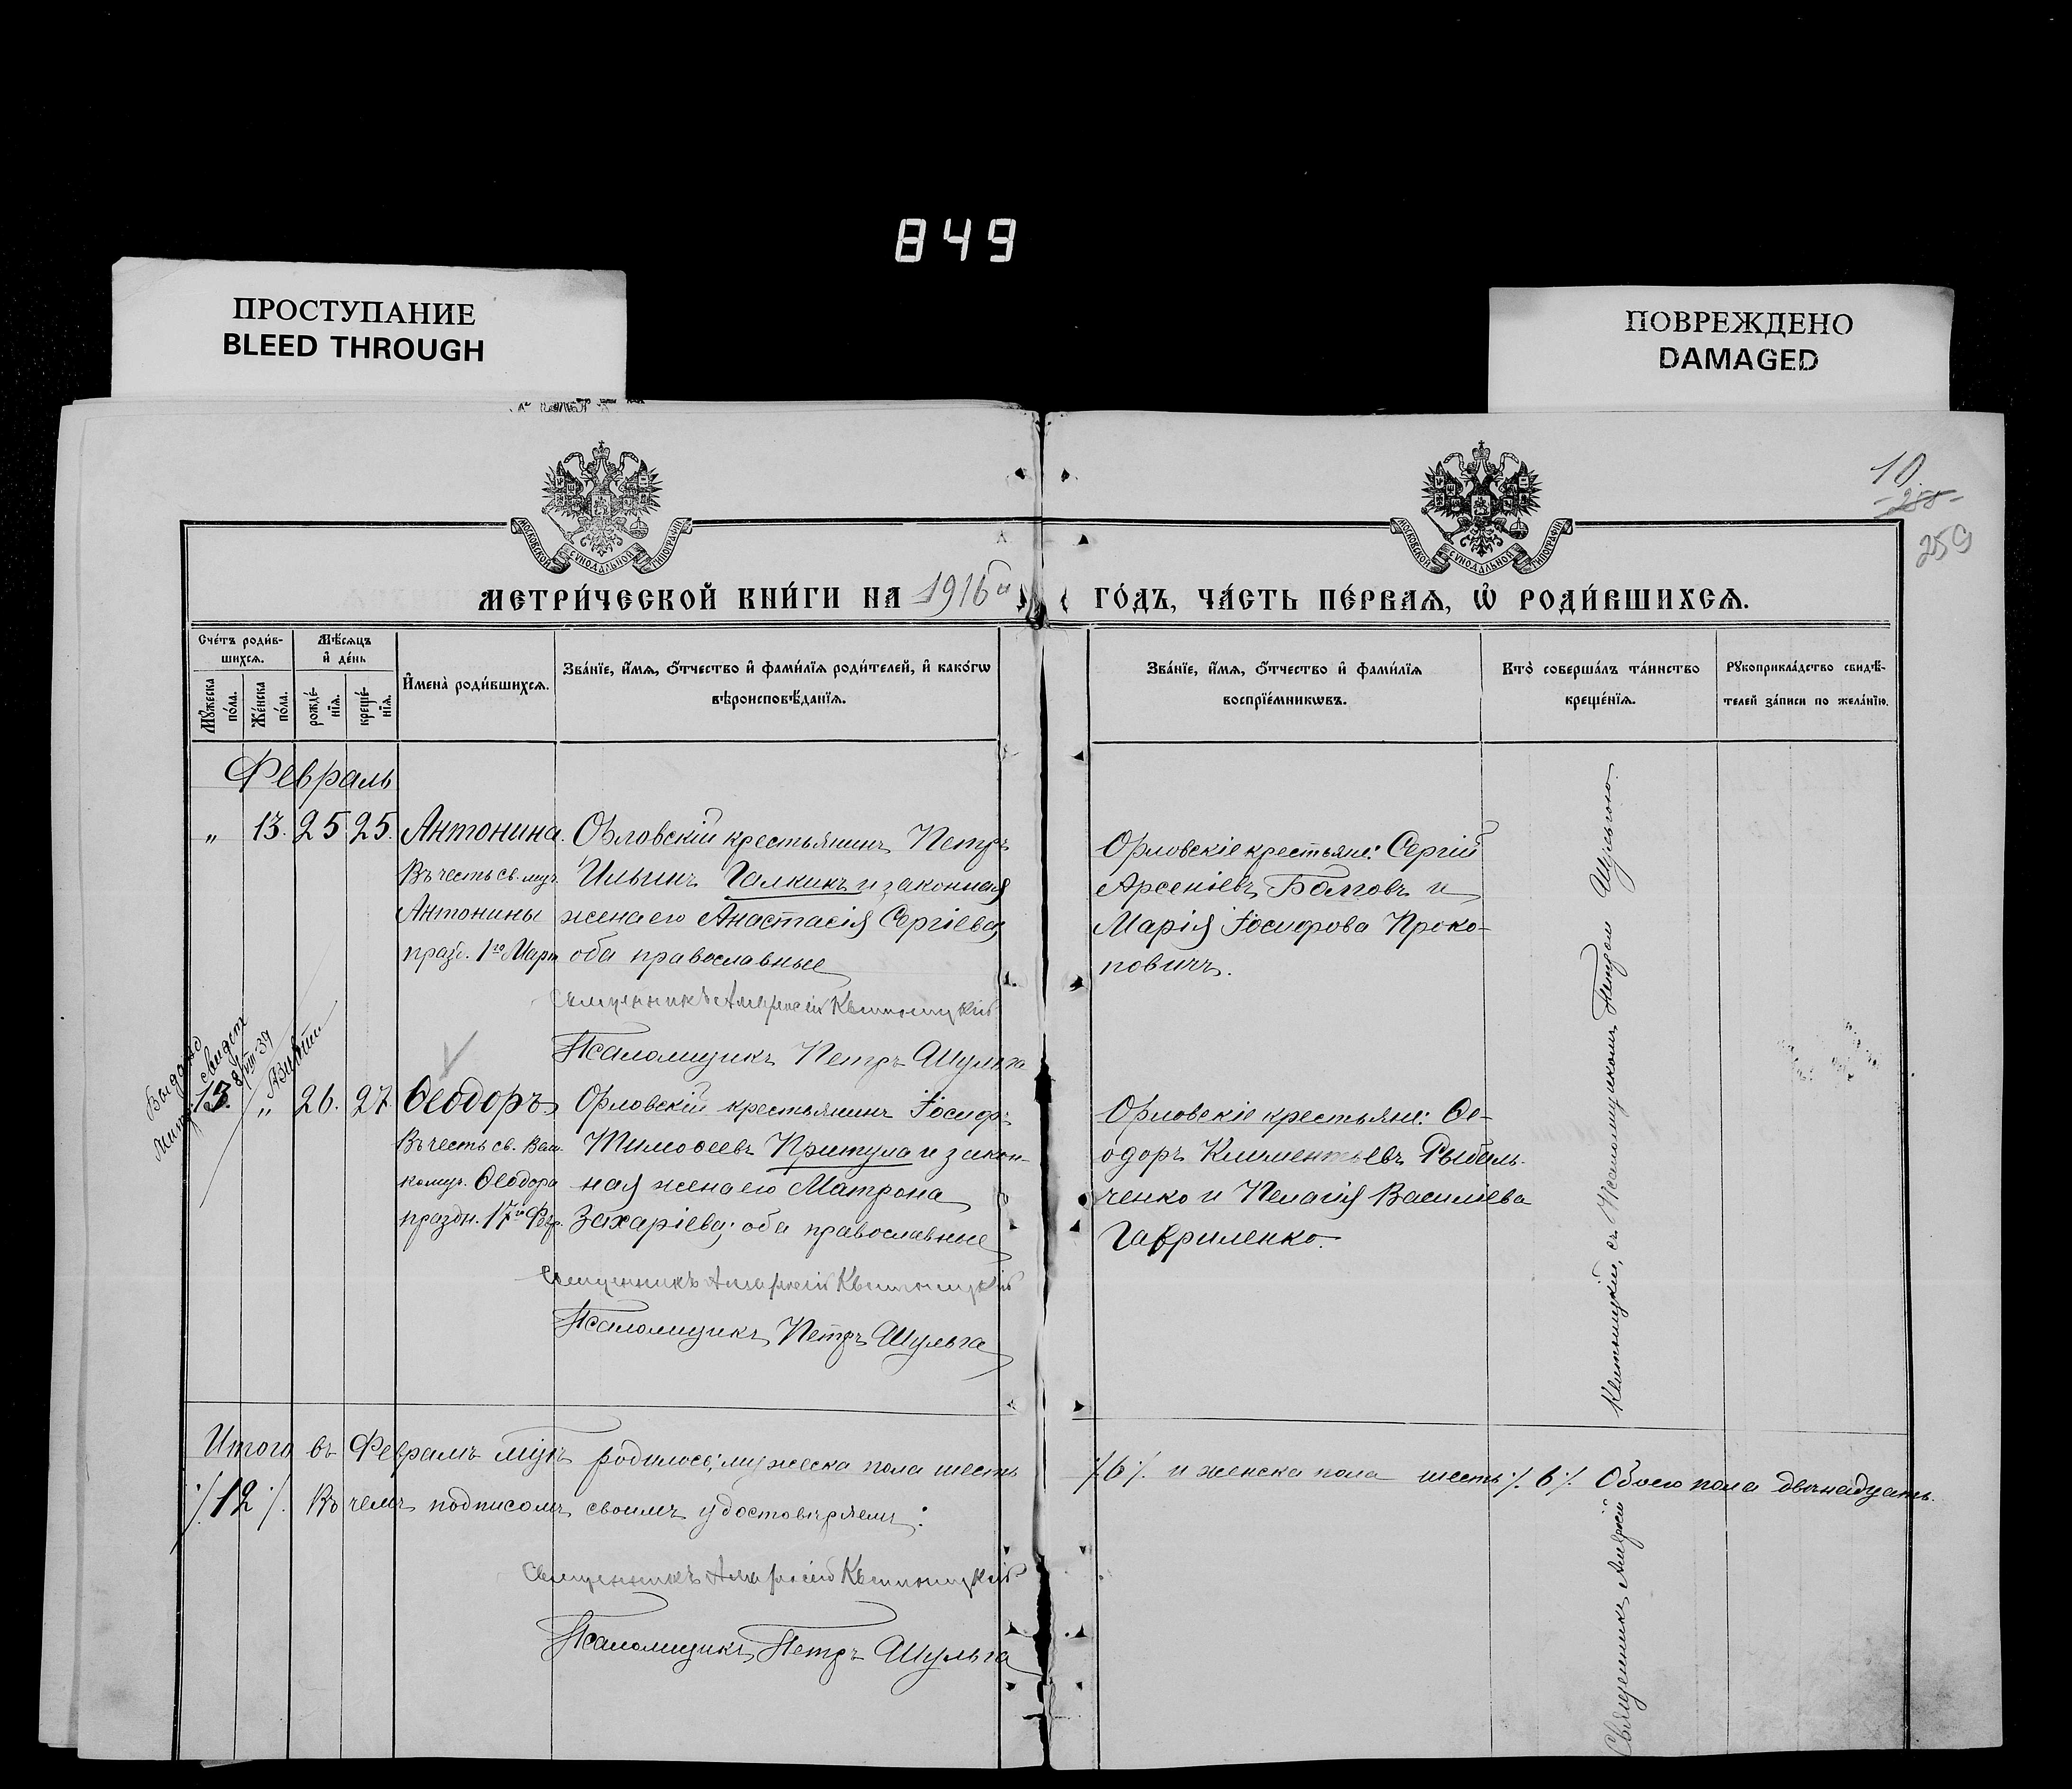 849
ПРОСТУПАНИЕ
BLEED THROUGH
ПОВРЕЖДЕНО
DAMAGED
10.
259
МОСКОВСКОЙ СѴНОДАЛЬНОЙ ТИПОГРАФІИ
МОСКОВСКОЙ СѴНОДАЛЬНОЙ ТИПОГРАФІИ
МЕТРИ́ЧЕСКОЙ КНИ́ГИ НА 1916й ГО́ДЪ, ЧА́СТЬ ПЕ́РВАѦ, Ѡ҆ РОДИ́ВШИХСѦ.
Сче́тъ роди́в-
шихсѧ.
Мꙋ́жеска по́ла.
Же́нска по́ла.
Мѣ́сѧцъ
и҆ де́нь
рожде́-
нїѧ.
креще́-
нїѧ.
И҆мена̀ роди́вшихсѧ.
Зва́нїе, и҆́мѧ, ѻ҆́тчество и҆ фами́лїѧ роди́телей, и҆ како́гѡ
вѣроисповѣ́данїѧ.
Зва́нїе, и҆́мѧ, ѻ҆́тчество и҆ фами́лїѧ
воспрїе́мникѡвъ.
Кто̀ соверша́лъ та́инство
креще́нїѧ.
Рꙋкоприкла́дство свидѣ́-
телей за́писи по жела́нїю.
Февраль
„ 13. 25 25. Антонина.
Въ честь св. муч.
Антонины
празд. 1го Март
Орловскій крестьянинъ Петръ
Ильинъ Галкинъ и законная
жена его Анастасія Сергіева
оба православные
Священникъ Амвросій Квитницкій
Псаломщикъ Петръ Шульга
Орловскіе крестьяне: Сергій
Арсеніевъ Болговъ и
Марія Іосифова Проко-
повичъ.
Выдано
свидет
8/VIII-39
13. „ 26. 27 Ѳеодоръ
Въ честь св. Вел.
комуч. Ѳеодора
праздн. 17й Февр.
Орловскій крестьянинъ Іосифъ
Тимоѳеевъ Притула и закон-
ная жена его Матрона
Захаріева; оба православные
Священникъ Амвросій Квитницкій
Псаломщикъ Петръ Шульга
Орловскіе крестьяне: Ѳе-
одоръ Климентьевъ Рыбаль-
ченко и Пелагія Василіева
Гавриленко.
Священникъ Амвросій Квитницкій, съ Псаломщикомъ Петромъ Шульгою.
Итого въ Февралѣ мцѣ родилось: мужеска пола шесть ./.6./. и женска пола шесть ./.6./. Обоего пола двѣнадцать.
./.12./. Въ чемъ подписомъ своимъ удостовѣряемъ:
Священникъ Амвросій Квитницкій
Псаломщикъ Петръ Шульга